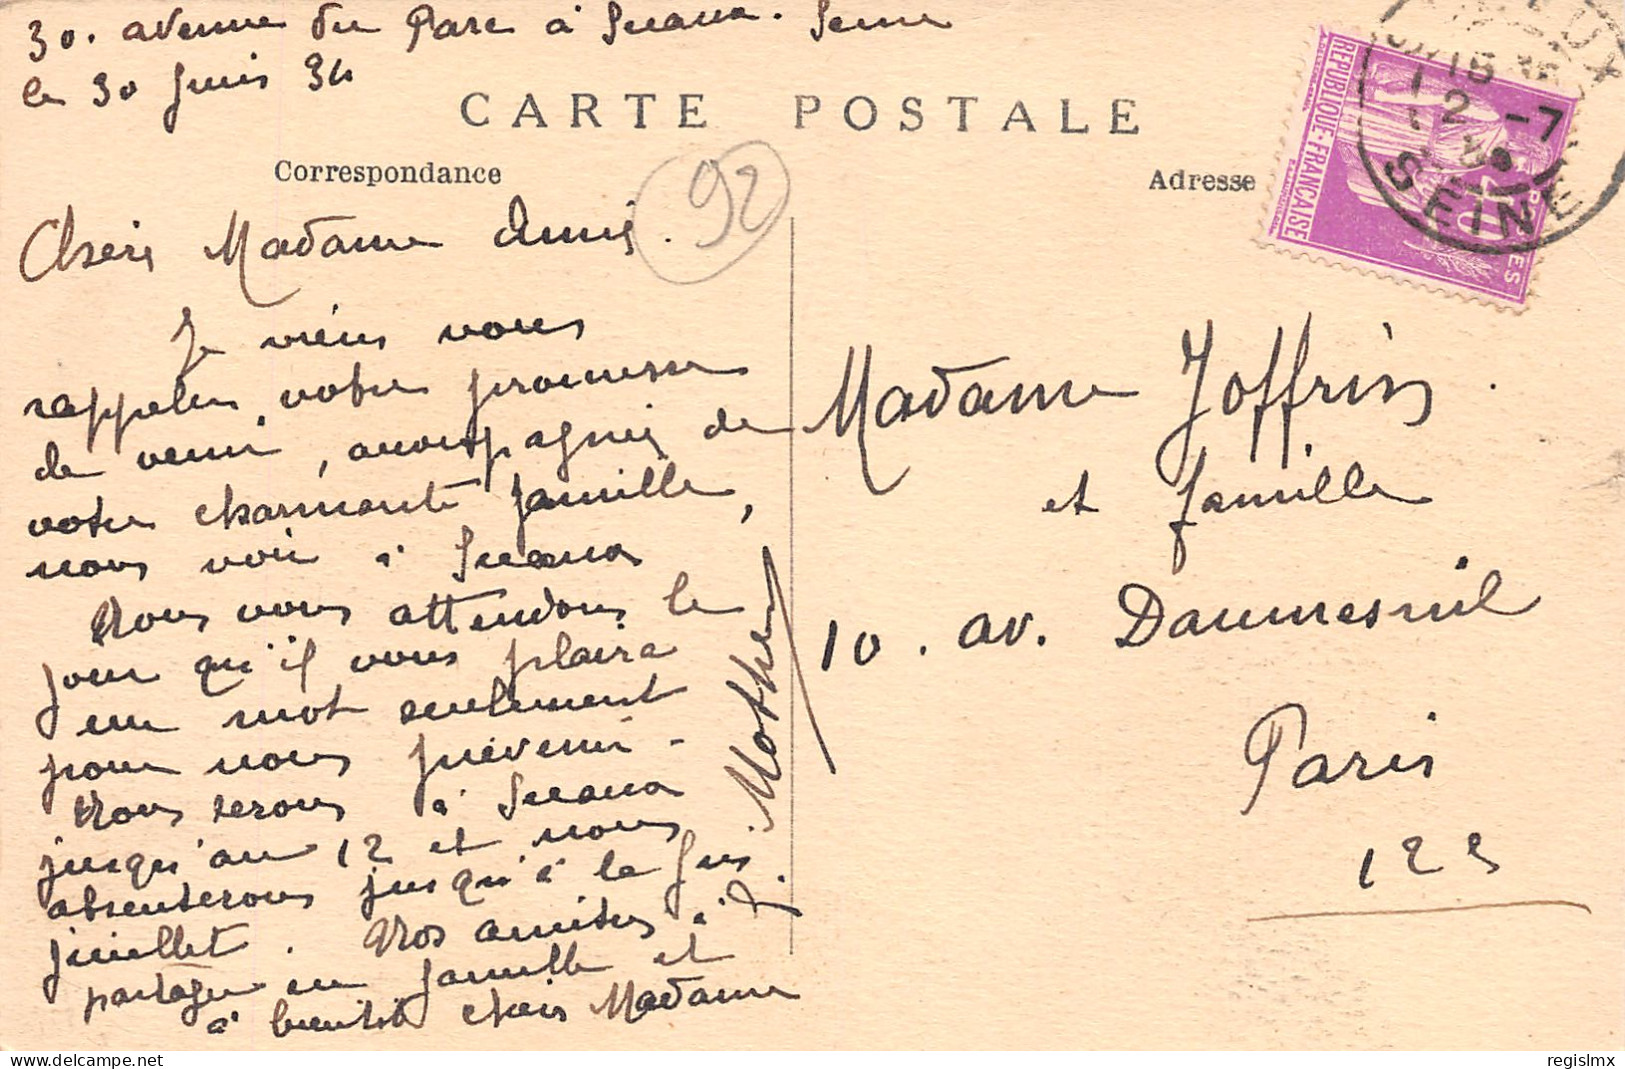 30. avenue du Parc à Sceaux. Seine
le 30 Juin 34
CARTE POSTALE
Correspondance
Adresse
92
REPUBLIQUE-FRANÇAISE
POSTES
18
2 -7
SEINE
Chère Madame Amie.
Je viens vous
rappeler, votre promesse
de venir, accompagnée de
votre charmante famille,
nous voir à Sceaux
Nous vous attendons le
jour qu'il vous plaira
un mot seulement
pour nous prévenir -
Nous serons à Sceaux
jusqu'au 12 et nous
absenterons jusqu'à la fin
juillet. Nos amitiés à
partager en famille et
à bientôt chère Madame
J. Mother
Madame Joffrin.
et famille
10. av. Daumesnil
Paris
12e
regislmx